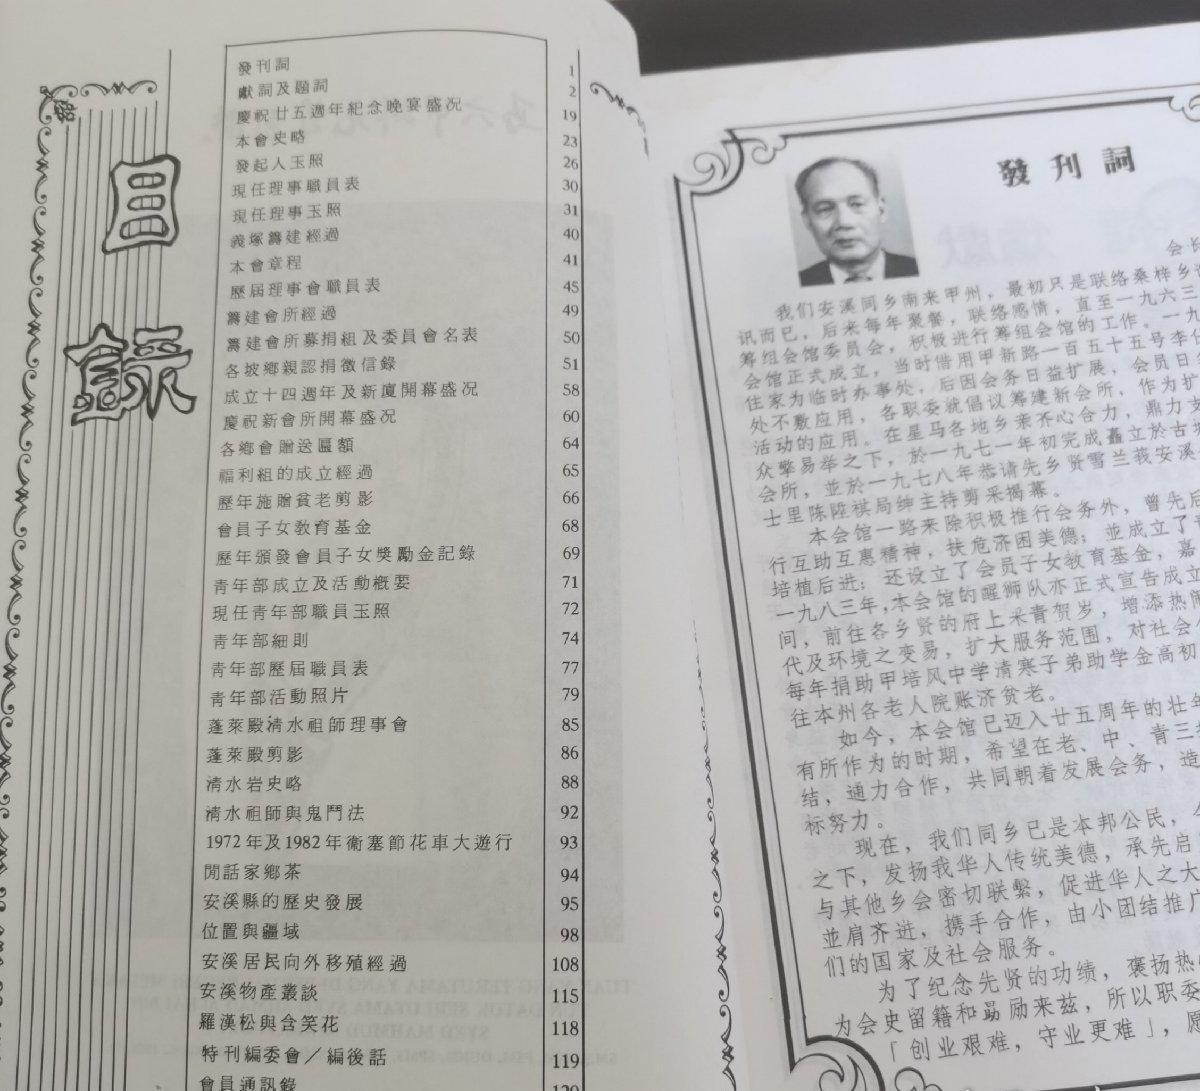 目錄
發刊詞 1
獻詞及題詞 2
慶祝廿五週年紀念晚宴盛况 19
本會史略 23
發起人玉照 26
現任理事職員表 30
現任理事玉照 31
義塚籌建經過 40
本會章程 41
歷屆理事會職員表 45
籌建會所經過 49
籌建會所募捐組及委員會名表 50
各坡鄉親認捐徵信錄 51
成立十四週年及新廈開幕盛况 58
慶祝新會所開幕盛况 60
各鄉會贈送匾額 64
福利組的成立經過 65
歷年施贈貧老剪影 66
會員子女教育基金 68
歷年頒發會員子女獎勵金記錄 69
青年部成立及活動概要 71
現任青年部職員玉照 72
青年部細則 74
青年部歷屆職員表 77
青年部活動照片 79
蓬萊殿清水祖師理事會 85
蓬萊殿剪影 86
清水岩史略 88
清水祖師與鬼鬥法 92
1972年及1982年衛塞節花車大遊行 93
閒話家鄉茶 94
安溪縣的歷史發展 95
位置與疆域 98
安溪居民向外移殖經過 108
安溪物產叢談 115
羅漢松與含笑花 118
特刊編委會／編後話 119
會員通訊錄 120
發刊詞
会长
我们安溪同乡南来甲州，最初只是联络桑梓乡
讯而已，后来每年聚餐，联络感情，直至一九六三
筹组会馆委员会，积极进行筹组会馆的工作。一九
会馆正式成立，当时借用甲新路一百五十五号李
住家为临时办事处，后因会务日益扩展，会员日
处不敷应用，各职委就倡议筹建新会所，作为扩
活动的应用。在星马各地乡亲齐心合力，鼎力支
众擎易举之下，於一九七一年初完成矗立於古城
会所，並於一九七八年恭请先乡贤雪兰莪安溪
士里陈陞祺局绅主持剪采揭幕。
本会馆一路来除积极推行会务外，曾先后
行互助互惠精神，扶危济困美德；並成立了
培植后进；还设立了会员子女教育基金，嘉
一九八三年，本会馆的醒狮队亦正式宣告成立
间，前往各乡贤的府上采青贺岁，增添热闹
代及环境之变易，扩大服务范围，对社会人
每年捐助甲培风中学清寒子弟助学金高初
往本州各老人院赈济贫老。
如今，本会馆已迈入廿五周年的壮年
有所作为的时期，希望在老、中、青三
结，通力合作，共同朝着发展会务，造
标努力。
现在，我们同乡已是本邦公民，
之下，发扬我华人传统美德，承先启
与其他乡会密切联繫，促进华人之大
並肩齐进，携手合作，由小团结推广
们的国家及社会服务。
为了纪念先贤的功绩，褒扬热心
为会史留籍和勗励来兹，所以职委
「创业艰难，守业更难」，愿